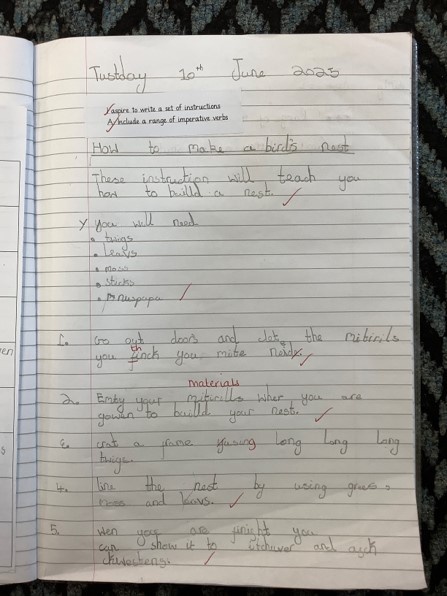 Tuesday 10th June 2025
I aspire to write a set of instructions
A: Include a range of imperative verbs
How to make a bird's nest
These instruction will teach you
how to build a nest.
You will need
• twigs
• leavs
• moss
• sticks
• nuspapa
1. Go out doors and the mitirils
you think you mite need.
materials
2. Emty your mitirills wher you are
gowen to build your nest.
3. a using long long long
twigs.
4. line the nest by using grass,
moss and leavs.
5. Wen you are you
can show it to and